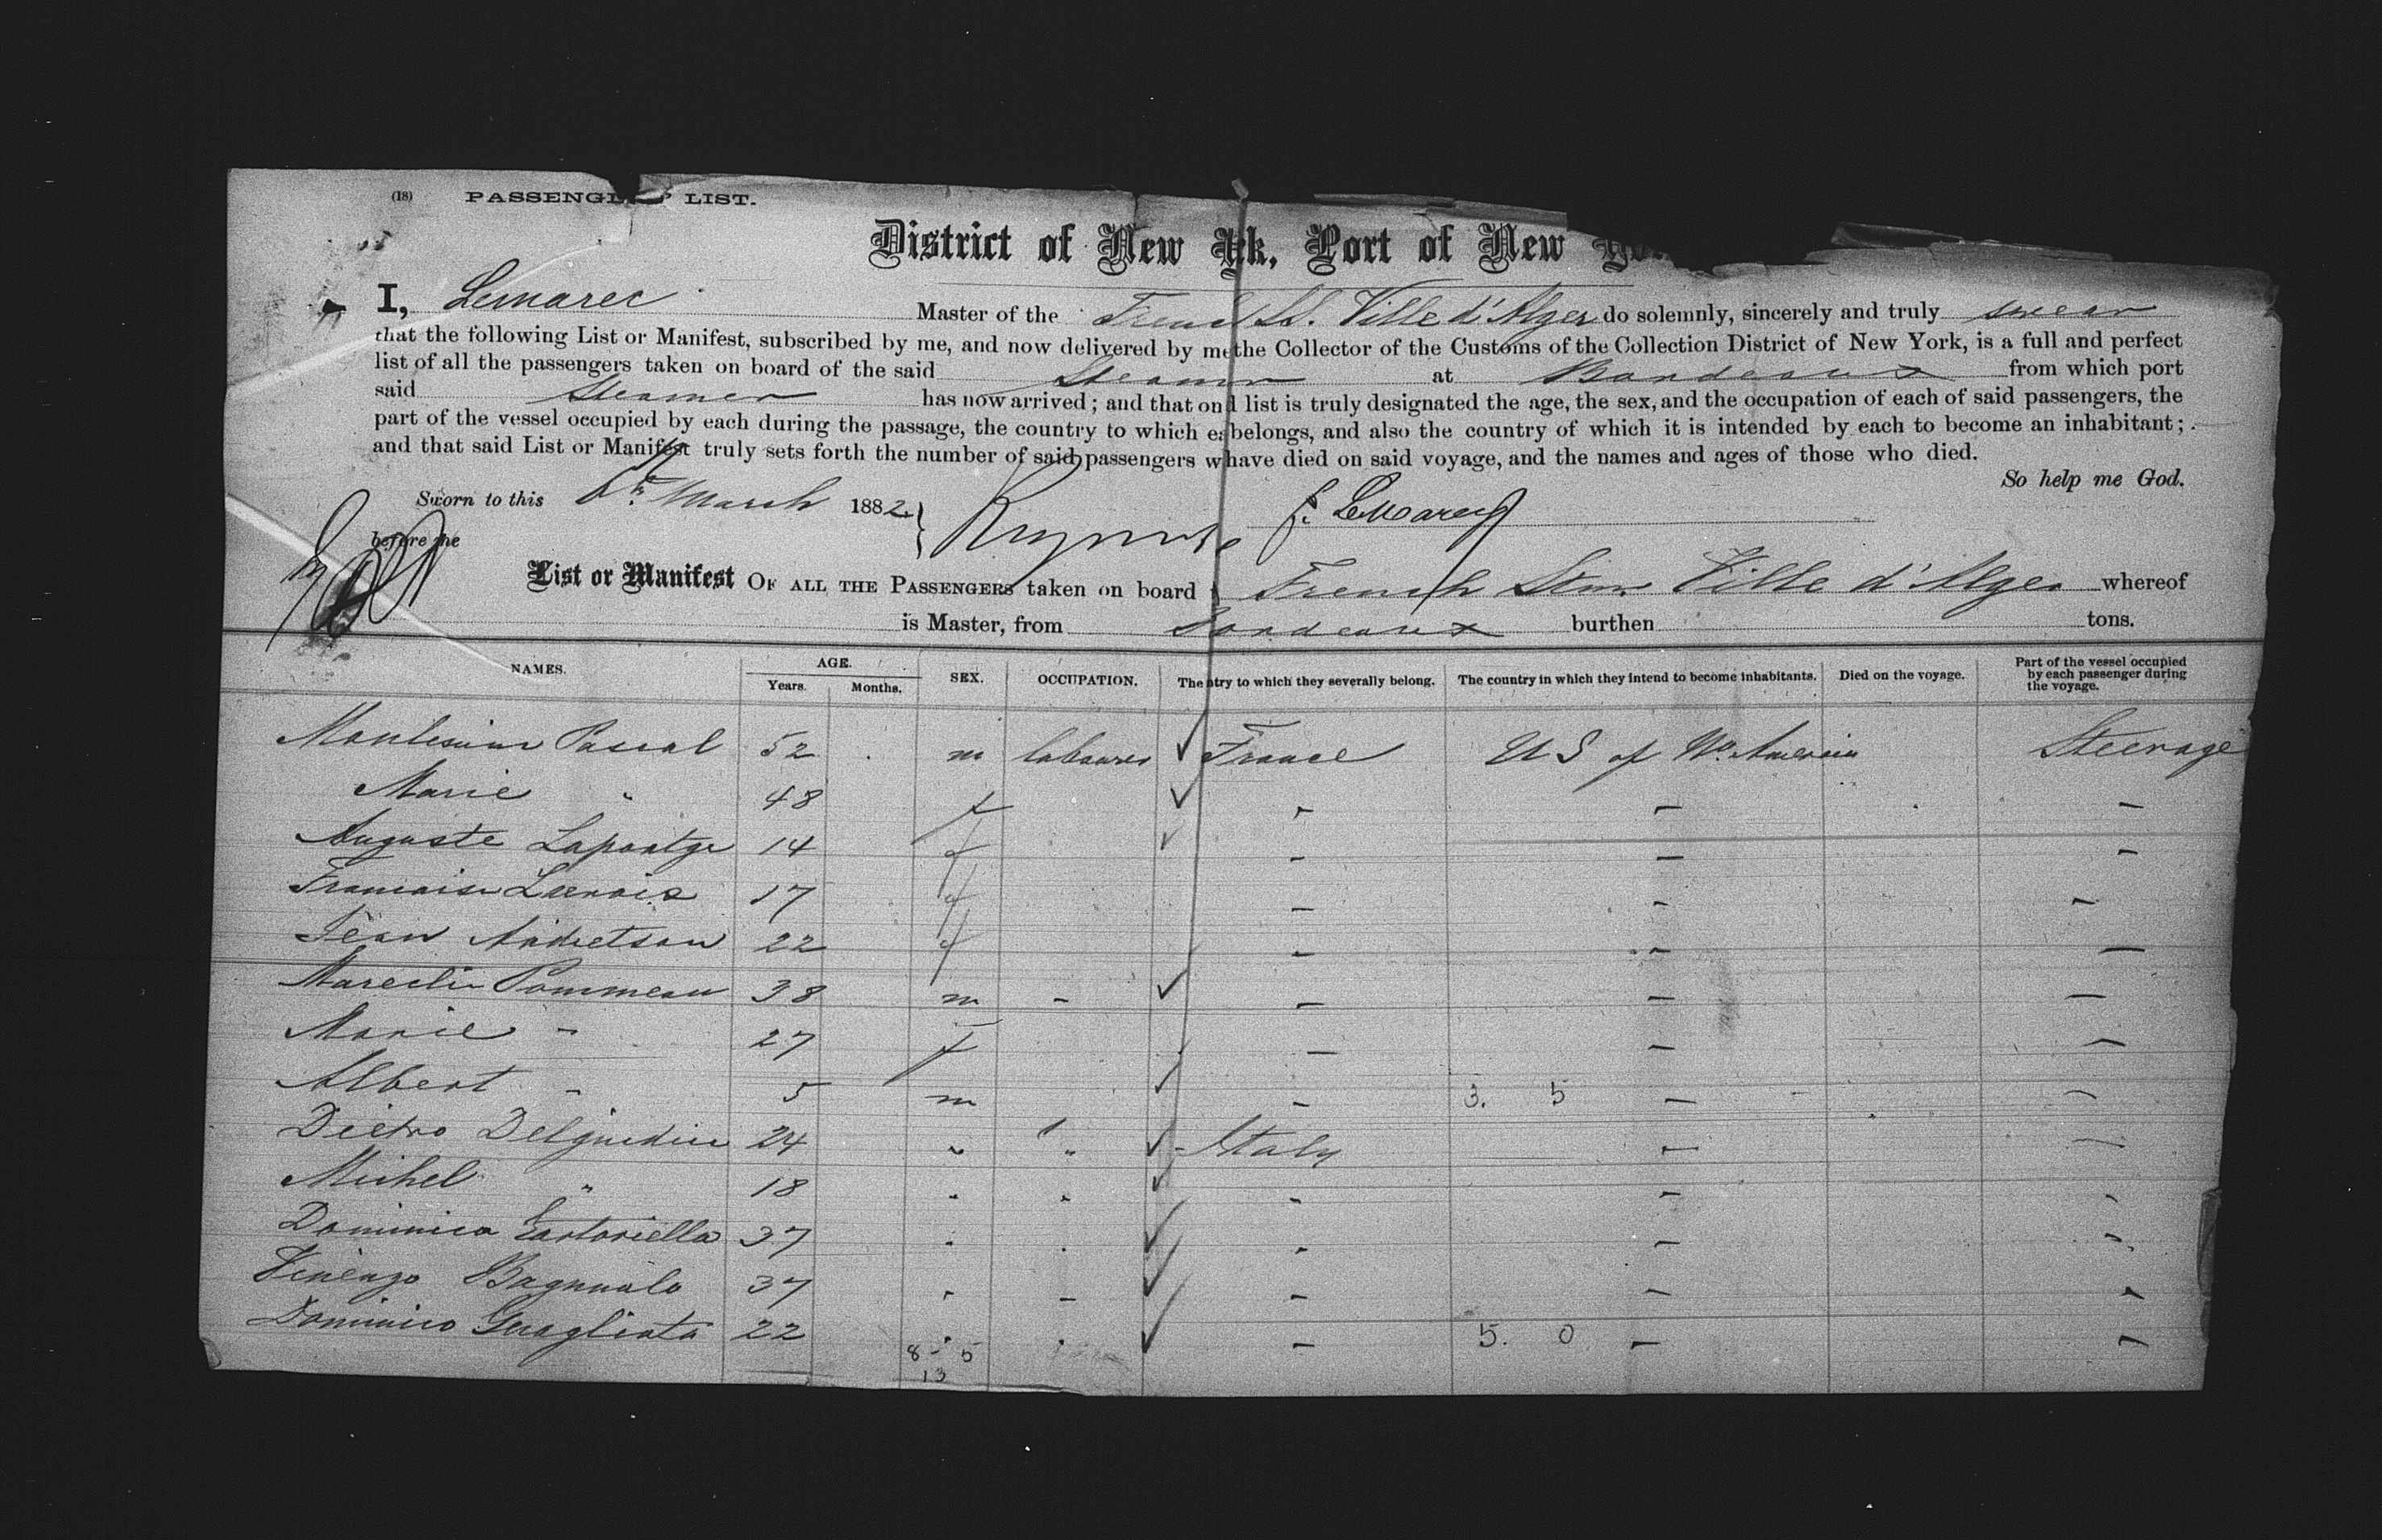 (18) PASSENGER LIST.
District of New York, Port of New Yo
I, Lemarec Master of the French SS. Ville d'Alger do solemnly, sincerely and truly swear
that the following List or Manifest, subscribed by me, and now delivered by me the Collector of the Customs of the Collection District of New York, is a full and perfect
list of all the passengers taken on board of the said Steamer at Bordeaux from which port
said Steamer has now arrived; and that on d list is truly designated the age, the sex, and the occupation of each of said passengers, the
part of the vessel occupied by each during the passage, the country to which ea belongs, and also the country of which it is intended by each to become an inhabitant;
and that said List or Manifest truly sets forth the number of said passengers w have died on said voyage, and the names and ages of those who died.
So help me God.
Sworn to this 6th March 1882
before me
List or Manifest OF ALL THE PASSENGERS taken on board French Stmr Ville d'Alger whereof
is Master, from Bordeaux burthen tons.
NAMES. AGE. Years. Months. SEX. OCCUPATION. The ntry to which they severally belong. The country in which they intend to become inhabitants. Died on the voyage. Part of the vessel occupied by each passenger during the voyage.
Pascal 52 m labourer ✓ France US of No. America Steerage
Marie " 48 f ✓ - - -
Auguste 14 f ✓ - - -
17 f - - -
Jean 22 f - - -
Marcelin Pommeau 38 m - ✓ - - -
Marie - 27 f - - -
Albert - 5 m ✓ - 3. 5 - -
Pietro Delguidice 24 " " ✓ Italy - -
Michel " 18 " " ✓ - - "
Dominica Sartoriella 37 " " ✓ " - "
Vincenzo Bagnualo 37 " - ✓ - - "
Dominico Guagliata 22 " " ✓ - 5. 0 - -
8 - 5
13